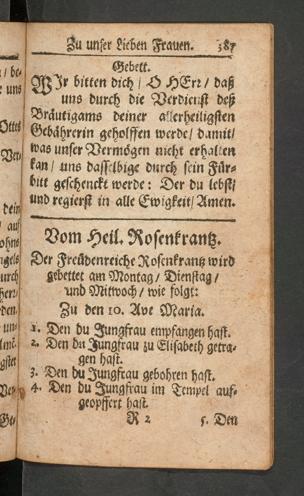 Zu unser lieben Frauen. 387
Gebett.
WJr bitten dich / O HErr / daß
uns durch die Verdienst deß
Bräutigams deiner allerheiligsten
Gebährerin geholffen werde / damit /
was unser Vermögen nicht erhalten
kan / uns dasselbige durch sein Für-
bitt geschenckt werde: Der du lebst /
und regierst in alle Ewigkeit / Amen.
Vom Heil. Rosenkrantz.
Der Freüdenreiche Rosenkrantz wird
gebettet am Montag / Dienstag /
und Mittwoch / wie folgt:
Zu den 10. Ave Maria.
1. Den du Jungfrau empfangen hast.
2. Den du Jungfrau zu Elisabeth getra-
gen hast.
3. Den du Jungfrau gebohren hast.
4. Den du Jungfrau im Tempel auf-
geopffert hast.
R 2 5. Den